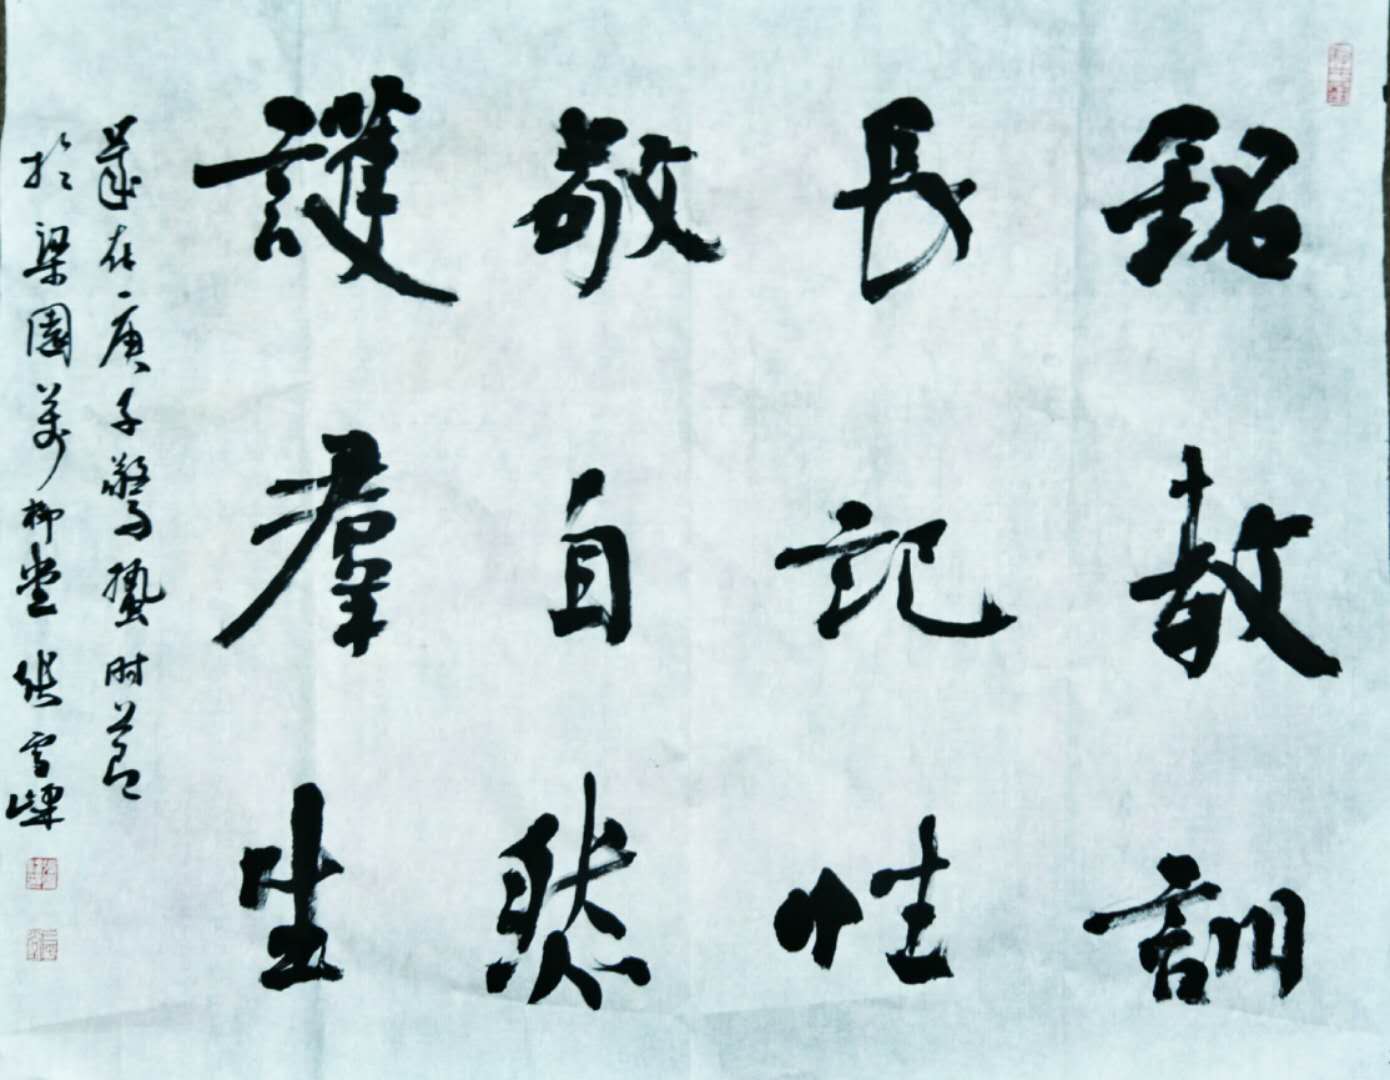 銘教訓
長記性
敬自然
護羣生
歲在庚子驚蟄時节
於梁園萬柳堂張雪嶸